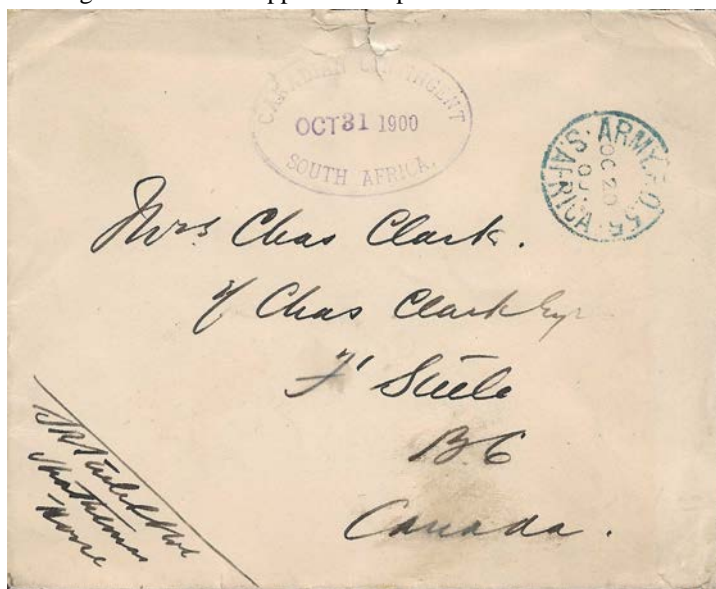 CANADIAN CONTINGENT
OCT 31 1900
SOUTH AFRICA.
ARMY P.O. 55
OC 20
00
S. AFRICA
Mrs Chas Clark.
c/ Chas Clark Esqr
Ft Steele
B C
Canada.
Strathconas
Horse